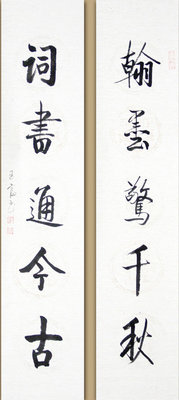 翰墨驚千秋
詞書通今古